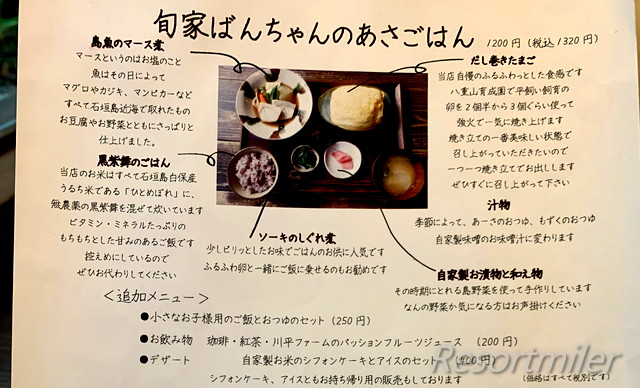 旬家ばんちゃんのあさごはん 1200円(税込1320円)
島魚のマース煮
マースというのはお塩のこと
魚はその日によって
マグロやカジキ、マンビカーなど
すべて石垣島近海で取れたもの
お豆腐やお野菜とともにさっぱりと
仕上げました。
黒紫舞のごはん
当店のお米はすべて石垣島白保産
うるち米である「ひとめぼれ」に、
無農薬の黒紫舞を混ぜて炊いています
ビタミン・ミネラルたっぷりの
もちもちとした甘みのあるご飯です
控えめにしているので
ぜひお代わりしてください
ソーキのしぐれ煮
少しピリッとしたお味でごはんのお供に人気です
ふるふわ卵と一緒にご飯に乗せるのもお勧めです
だし巻きたまご
当店自慢のふるふわっとした食感です
八重山育成園で平飼い飼育の
卵を2個半から3個ぐらい使って
強火で一気に焼き上げます
焼き立ての一番美味しい状態で
召し上がっていただきたいので
一つ一つ焼き立てでお出しします
ぜひすぐに召し上がって下さい
汁物
季節によって、あーさのおつゆ、もずくのおつゆ
自家製味噌のお味噌汁に変わります
自家製お漬物と和え物
その時期にとれる島野菜を使って手作りしています
なんの野菜か気になる方はお声掛けください
<追加メニュー>
●小さなお子様用のご飯とおつゆのセット(250円)
●お飲み物 珈琲・紅茶・川平ファームのパッションフルーツジュース (200円)
●デザート 自家製お米のシフォンケーキとアイスのセット
シフォンケーキ、アイスともお持ち帰り用の販売もしております
(価格はすべて税別です)
Resortmiler